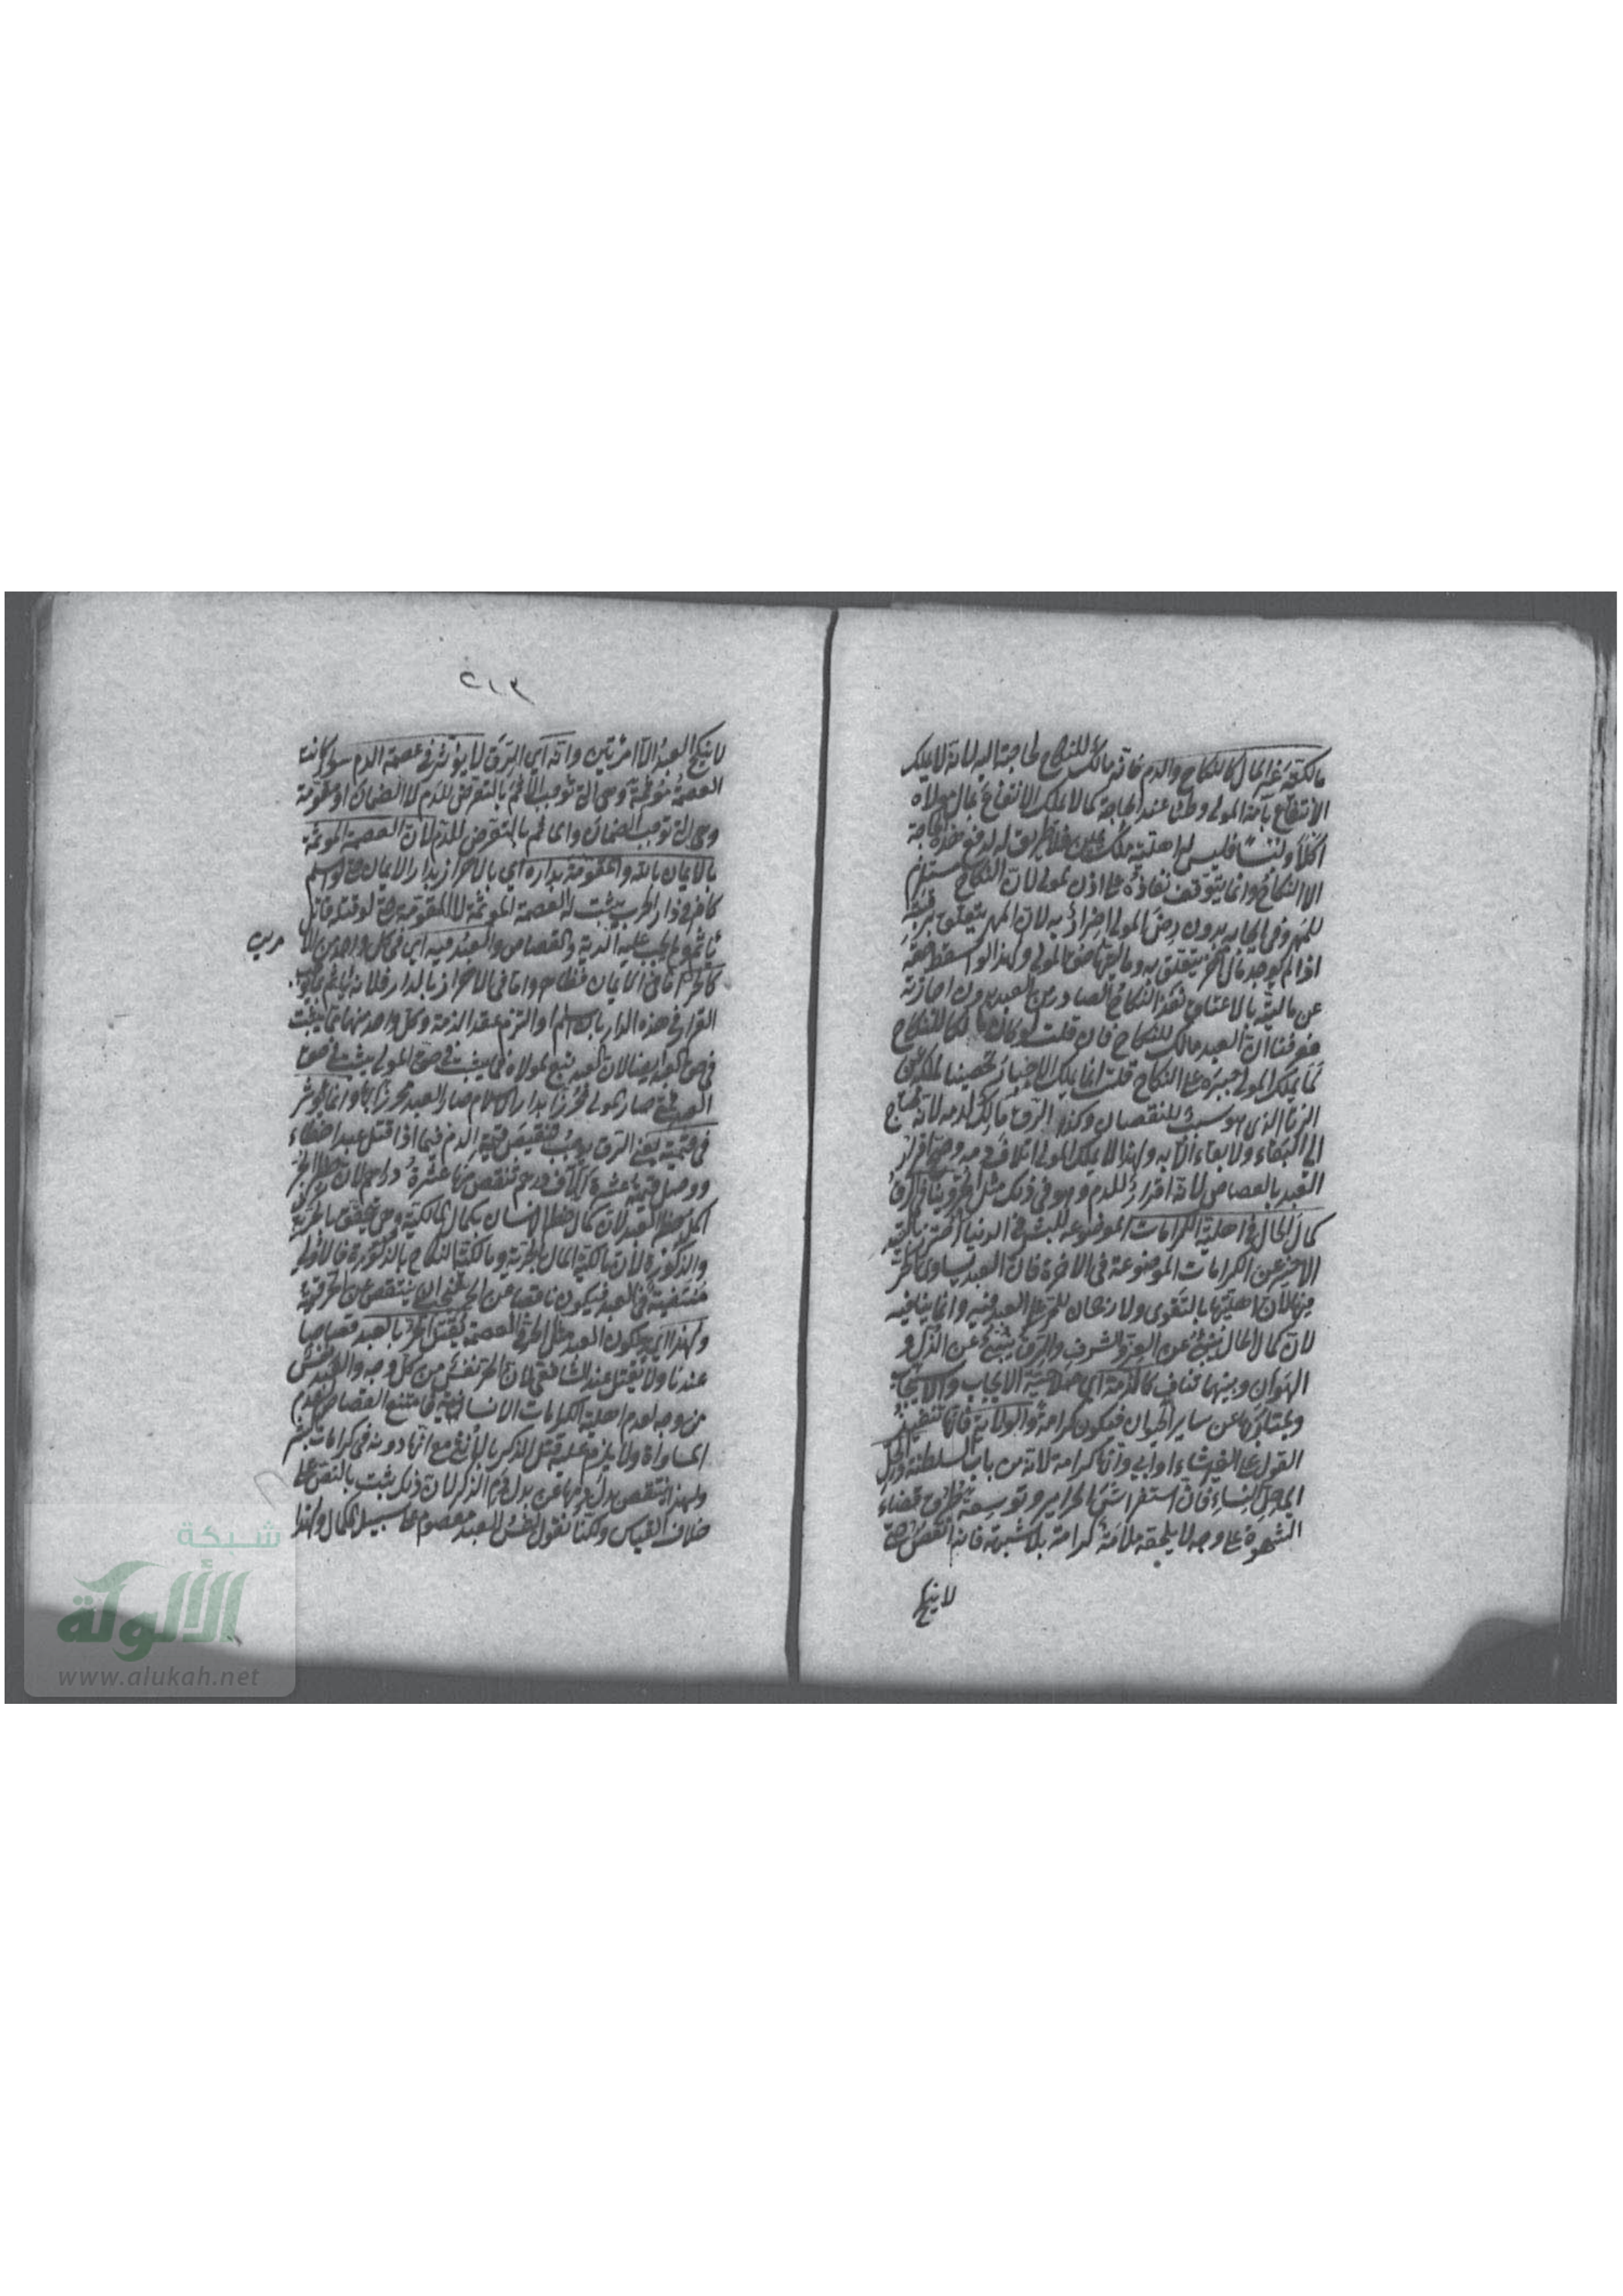 مالكية غير المال كالنكاح والدم فانه مالك للنكاح لحاجته اليه لانه لا يملك
الانتفاع بامة المولى وطئا عند الحاجة كما لا يملك الانتفاع بمال مولاه
اكلا ولبسا فليس له اهلية ملك اليمين فلا طريق له لدفع هذه الحاجة
الا النكاح وانما يتوقف نفاذه على اذن المولى لان النكاح مستلزم
للمهر وفي ايجابه بدون رضى المولى اضرار به لان المهر يتعلق برقبته
اذا لم يوجد مال آخر يتعلق به وماليتها حق المولى ولهذا لو اسقط حقه
عن ماليته بالاعتاق نفذ النكاح الصادر من العبد بدون اجازته
فعرفنا ان العبد مالك للنكاح فان قلت لو كان مالكا للنكاح
لما يملك المولى جبره على النكاح قلت انما يملك الاجبار تحصينا لملكه عن
الزنا الذي هو سبب للنقصان وكذا الرق مالك لدمه لانه يحتاج
الى البقاء ولا بقاء الا به ولهذا لا يملك المولى اتلاف دمه وصح اقرار
العبد بالقصاص لانه اقرار للدم وهو في ذلك مثل الحر وينافي الرق
كمال الحال في اهلية الكرامات الموضوعة للبشر في الدنيا احترز بالقيد
الاخير عن الكرامات الموضوعة في الاخرة فان العبد يساوى الحر
فيها لان اهليتها بالتقوى ولا رجحان للحر على العبد فيه وانما ينافيه
لان كمال الحال ينبئ عن العز والشرف والرق ينبئ عن الذل و
الهوان وبينهما تناف كالذمة اي صلاحية الايجاب والاستيجاب
وبها يمتاز عن ساير الحيوان فيكون كرامة والولاية فانها تنفيذ
القول على الغير شاء او ابى وانها كرامة لانه من باب السلطنة والحل
اي حل النساء فان استفراش الحراير وتوسعة طرق قضاء
الشهوة على وجه لا يلحقه ملامة كرامة بلا شبهة فانه انتقص حتى
لا ينكح
٢١٢
لا ينكح العبد الا امرئتين وانه اي الرق لا يؤثر في عصمة الدم سواء كانت
العصمة مؤثمة وهي التي توجب الاثم بالتعرض للدم لا الضمان او مقومة
وهي التي توجب الضمان والاثم بالتعرض للدم لان العصمة المؤثمة
بالايمان بالله والمقومة بداره اي بالاحراز بدار الايمان حتى لو اسلم
كافر في دار الحرب يثبت له العصمة المؤثمة لا المقومة حتى لو قتله قاتل
ياثم ولا يجب عليه الدية والقصاص والعبد فيه اي في كل واحد من الامرين
كالحر اما في الايمان فظاهر واما في الاحراز بالدار فلانه انما يتم
القرار في هذه الدار بالاسلام او التزام عقد الذمة وكل واحد منهما مما يثبت
في حق العبد ايضا لان العبد تبع لمولاه فما يثبت في حق المولى يثبت في حق
العبد حتى صار المولى محرزا بدار الاسلام صار العبد محرزا بها وانما يؤثر
في قيمته يعني الرق يوجب تنقيص قيمة الدم فيما اذا قتل عبدا خطاء
ووصل قيمته عشرة آلاف درهم تنقص منها عشرة دراهم لان خطر الحر
اكمل من خطر العبد لان كمال خطر الانسان بكمال المالكية وهي تتحقق بالحرية
والذكورة لان مالكية المال بالحرية ومالكية النكاح بالذكورة فالاولى
منتفية في العبد فيكون ناقصا عن الحر فيجب ان ينتقص عن الحر قيمة
ولهذا اي يكون العبد مثل الحر في العصمة يقتل الحر بالعبد قصاصا
عندنا ولا يقتل عند الشافعي لان الحر نفس من كل وجه والعبد نفس
من وجه لعدم اهلية الكرامات الانسانية فيمتنع القصاص لعدم
المساواة ولا يلزم عليه قتل الذكر بالانثى مع انها دونه في كرامات البشر
ولهذا انتقص بدل دمها عن بدل دم الذكر لان ذلك ثبت بالنص على
خلاف القياس ولكنا نقول نفس العبد معصوم على سبيل الكمال ولهذا
شبكة
الألوكة
www.alukah.net